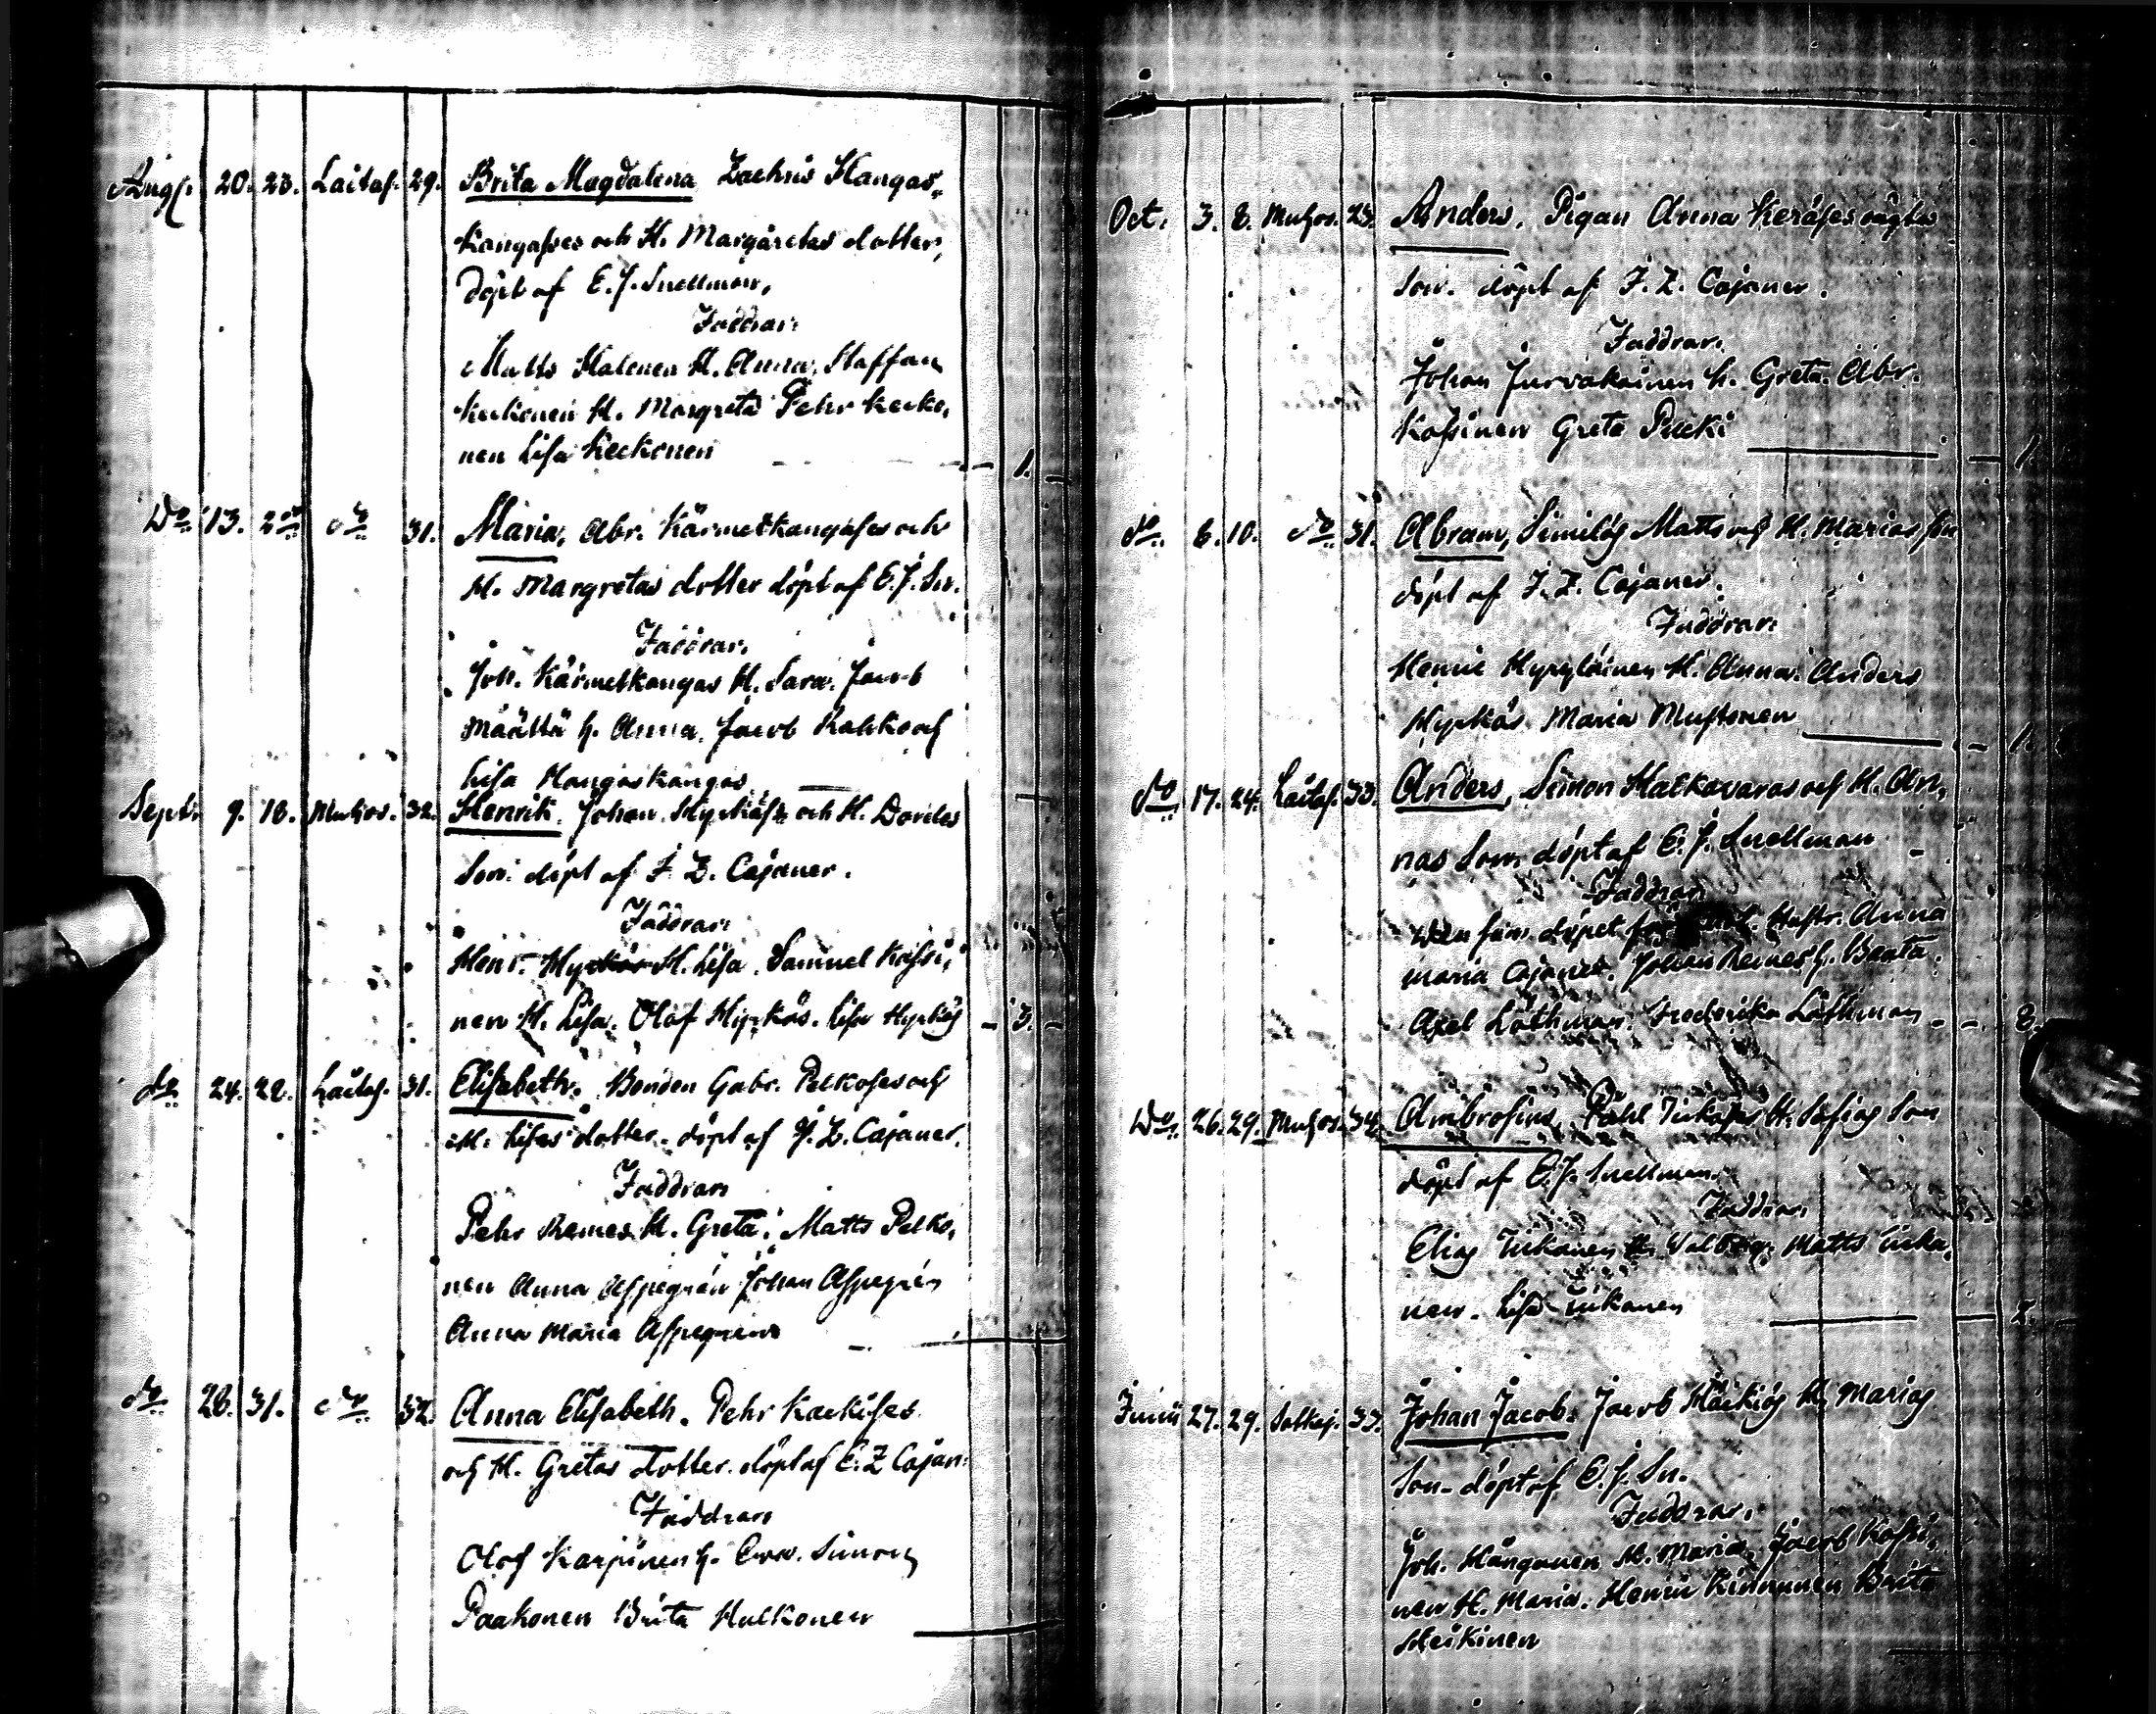 Aug. 20. 23. Laitas. 29. Brita Magdalena Zachris Hangas„
kangasses och H. Margaretas dotter,
döpt af E. J. Snellman,
Faddrar.
Matts Halenen H. Anna, Staffan
Keckonen H. Margreta Pehr Kecko,
nen Lisa Keckonen 1.
Do 13. 2 do do 31. Maria, Abr. Kärmetkangases och
H. Margretas dotter döpt af E. J. Sn.
Faddrar.
Joh. Kärmetkangas H. Sara. Jacob
Määttä h. Anna. Jacob
Lisa Hangaskangas
Sept. 9. 18. Muhos. 32. Henrik. Johan Hyrkäs och H. Dordes
Son. döpt af J. Z. Cajaner.
Faddrar.
Henr. Hyrkäs H. Lisa. Samuel Kassi„
nen H. Lisa. Olof Hyrkäs. Lisa Hyrkäs - 3. -
do 24. 29. Laitas. 31. Elisabeth. Bonden Gabr. Pelkoses och
H. Lisas dotter. döpt af J. Z. Cajaner.
Faddrar
Pehr Remes H. Greta. Matts Pelko,
nen Anna Aspegrén Johan Aspegrén
Anna Maria Aspegrén
do 28. 31. do 32. Anna Elisabeth. Pehr
och H. Gretas dotter. döpt af E. Z Cajan:
Faddrar
Olof Karjunen h. Ewa. Simon
Paakonen Brita Hulkonen
Oct. 3. 8. Muhos. 23. Anders. Pigan Anna Keräses oägta
Son. döpt af J. Z. Cajaner.
Faddrar.
Johan Jurvakainen h. Greta. Abr.
Kassinen Greta Pucki 1.
do 8. 10. do 31. Abram, Similäs Matts och H. Marias Son
döpt af J. Z. Cajaner.
Faddrar.
Henric Hyryläinen H. Anna. Anders
Hyrkäs Maria Mustonen 1.
do 17. 24. Laitas. 33. Anders, Simon Halkavaras och H. An,
nas Son. döpt af E. J. Snellman
Faddrar
Hustr. Anna
Maria Cajaner. Johan Remes h. Banta.
Axel Löthman. Frederika Löthman 8.
Do 26. 29. Muhos. 34. Ambrosius, Påhl H. Sofias Son
döpt af E. J. Snellman.
Faddrar,
Elias H. Valborg. Matts
nen. Lisa
Junii 27. 29. Sotkaj. 33. Johan Jacob. Jacob H. Marias
Son. döpt af E. J. Sn.
Faddrar.
Joh. H. Maria, Jacob Kassi,
nen H. Maria. Henric Kinnunen Brita
Heikinen